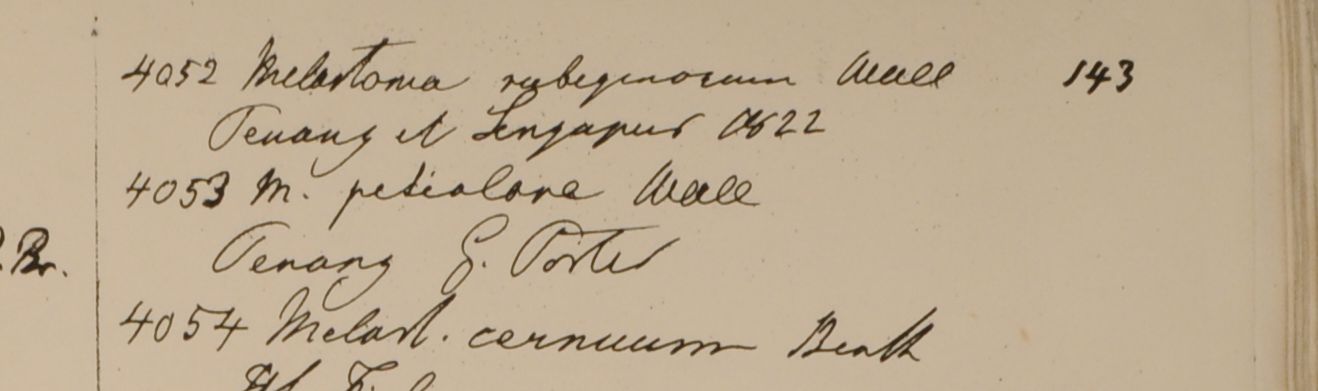 4052 Melastoma rubiginosum Wall 143
Penang et Singapur 1822
4053 M. petiolare Wall
Penang G. Porter
4054 Melast. cernuum Roxb
Br.